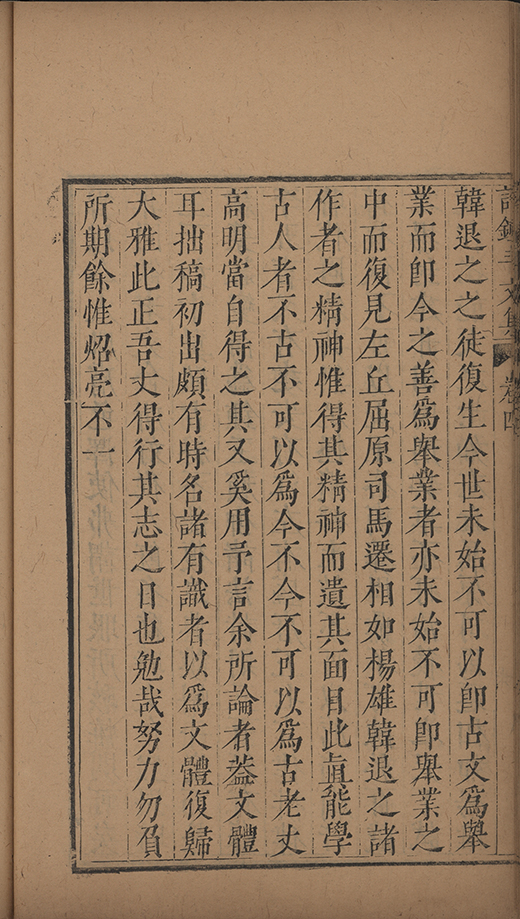 文集
卷四
韓退之之徒復生今世未始不可以卽古文爲舉
業而卽今之善爲舉業者亦未始不可卽舉業之
中而復見左丘屈原司馬遷相如楊雄韓退之諸
作者之精神惟得其精神而遺其面目此眞能學
古人者不古不可以爲今不今不可以爲古老丈
高明當自得之其又奚用予言余所論者葢文體
耳拙稿初出頗有時名諸有識者以爲文體復歸
大雅此正吾丈得行其志之日也勉哉努力勿負
所期餘惟炤亮不一